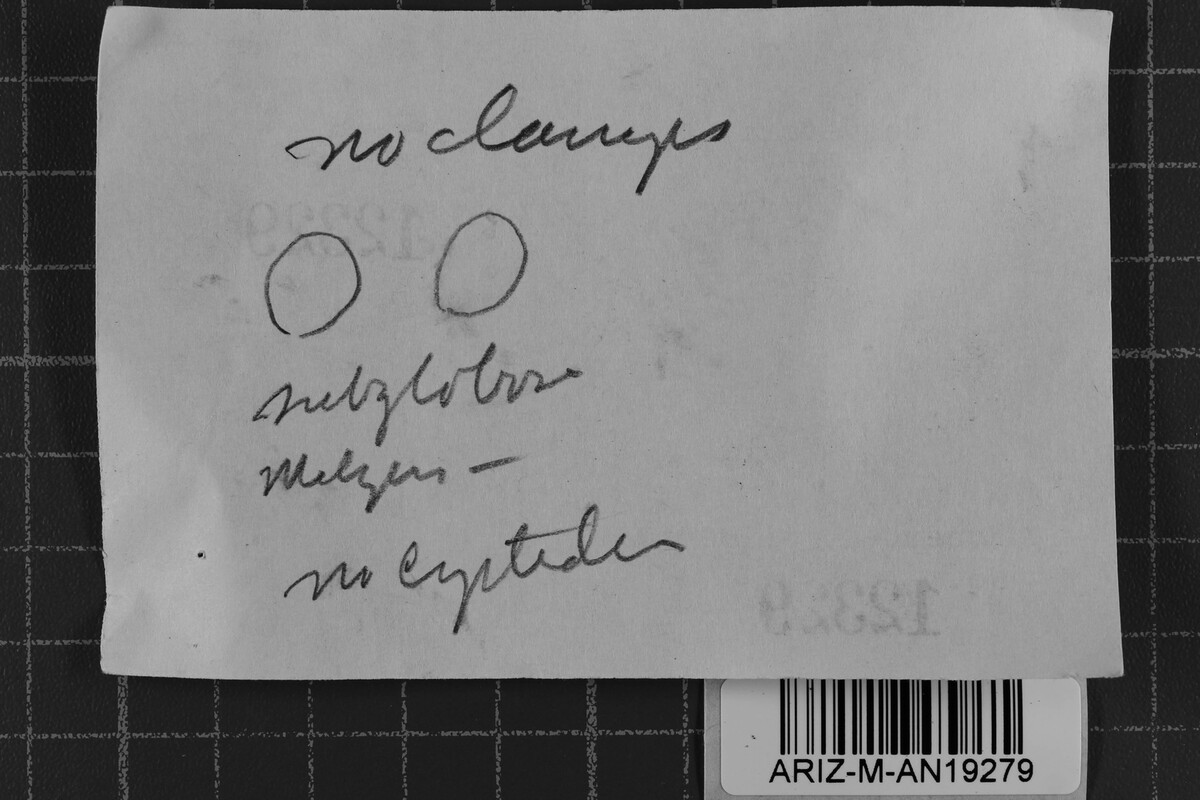 no clamps
subglobose
Melzers –
no cystidia
12329
12329
ARIZ-M-AN19279